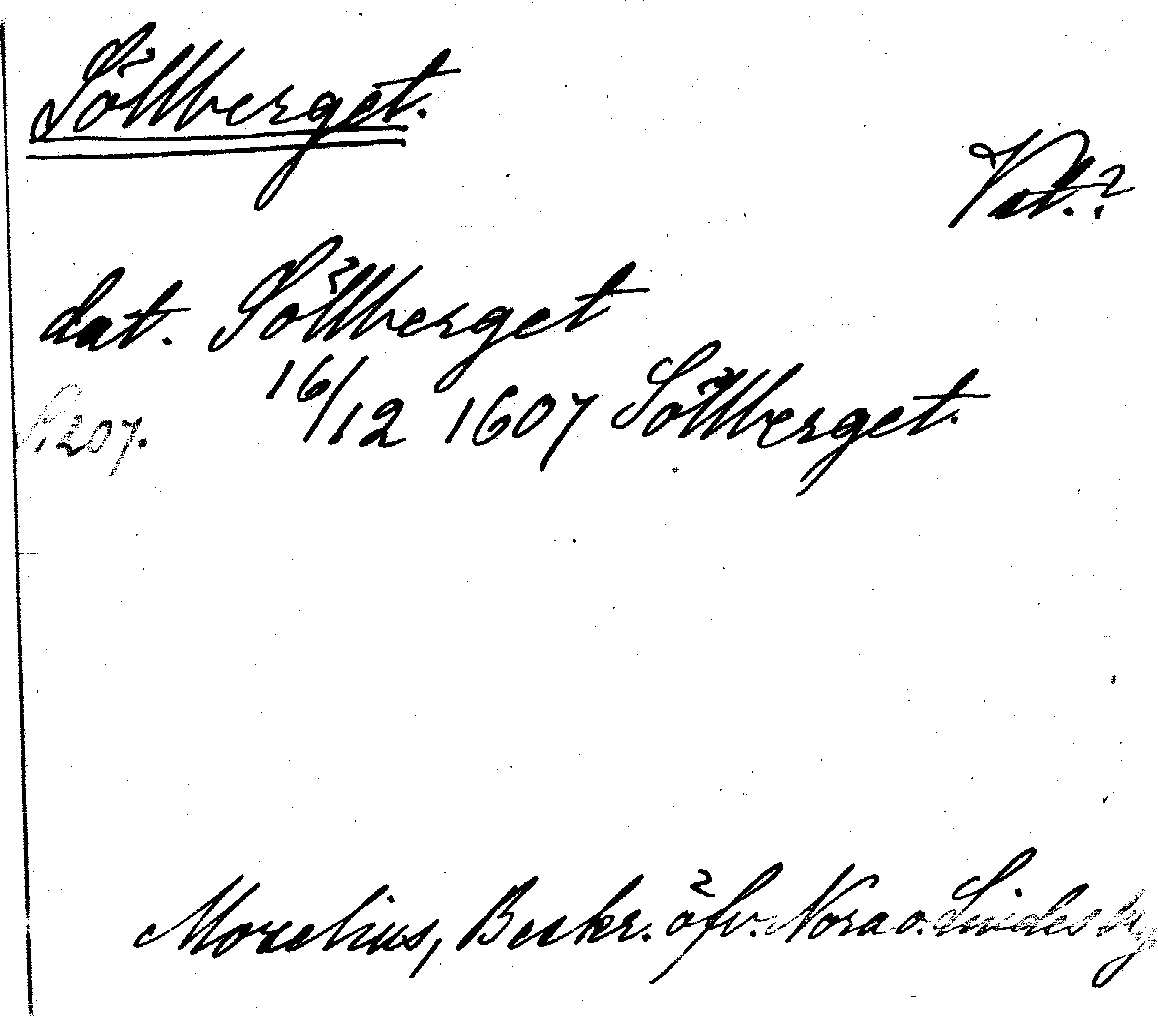 Söllberget.
Vat.?
dat. Söllberget
16/12 1607 Söllberget.
207.
Morelius, Beskr. öfv. Nora o. Lindes